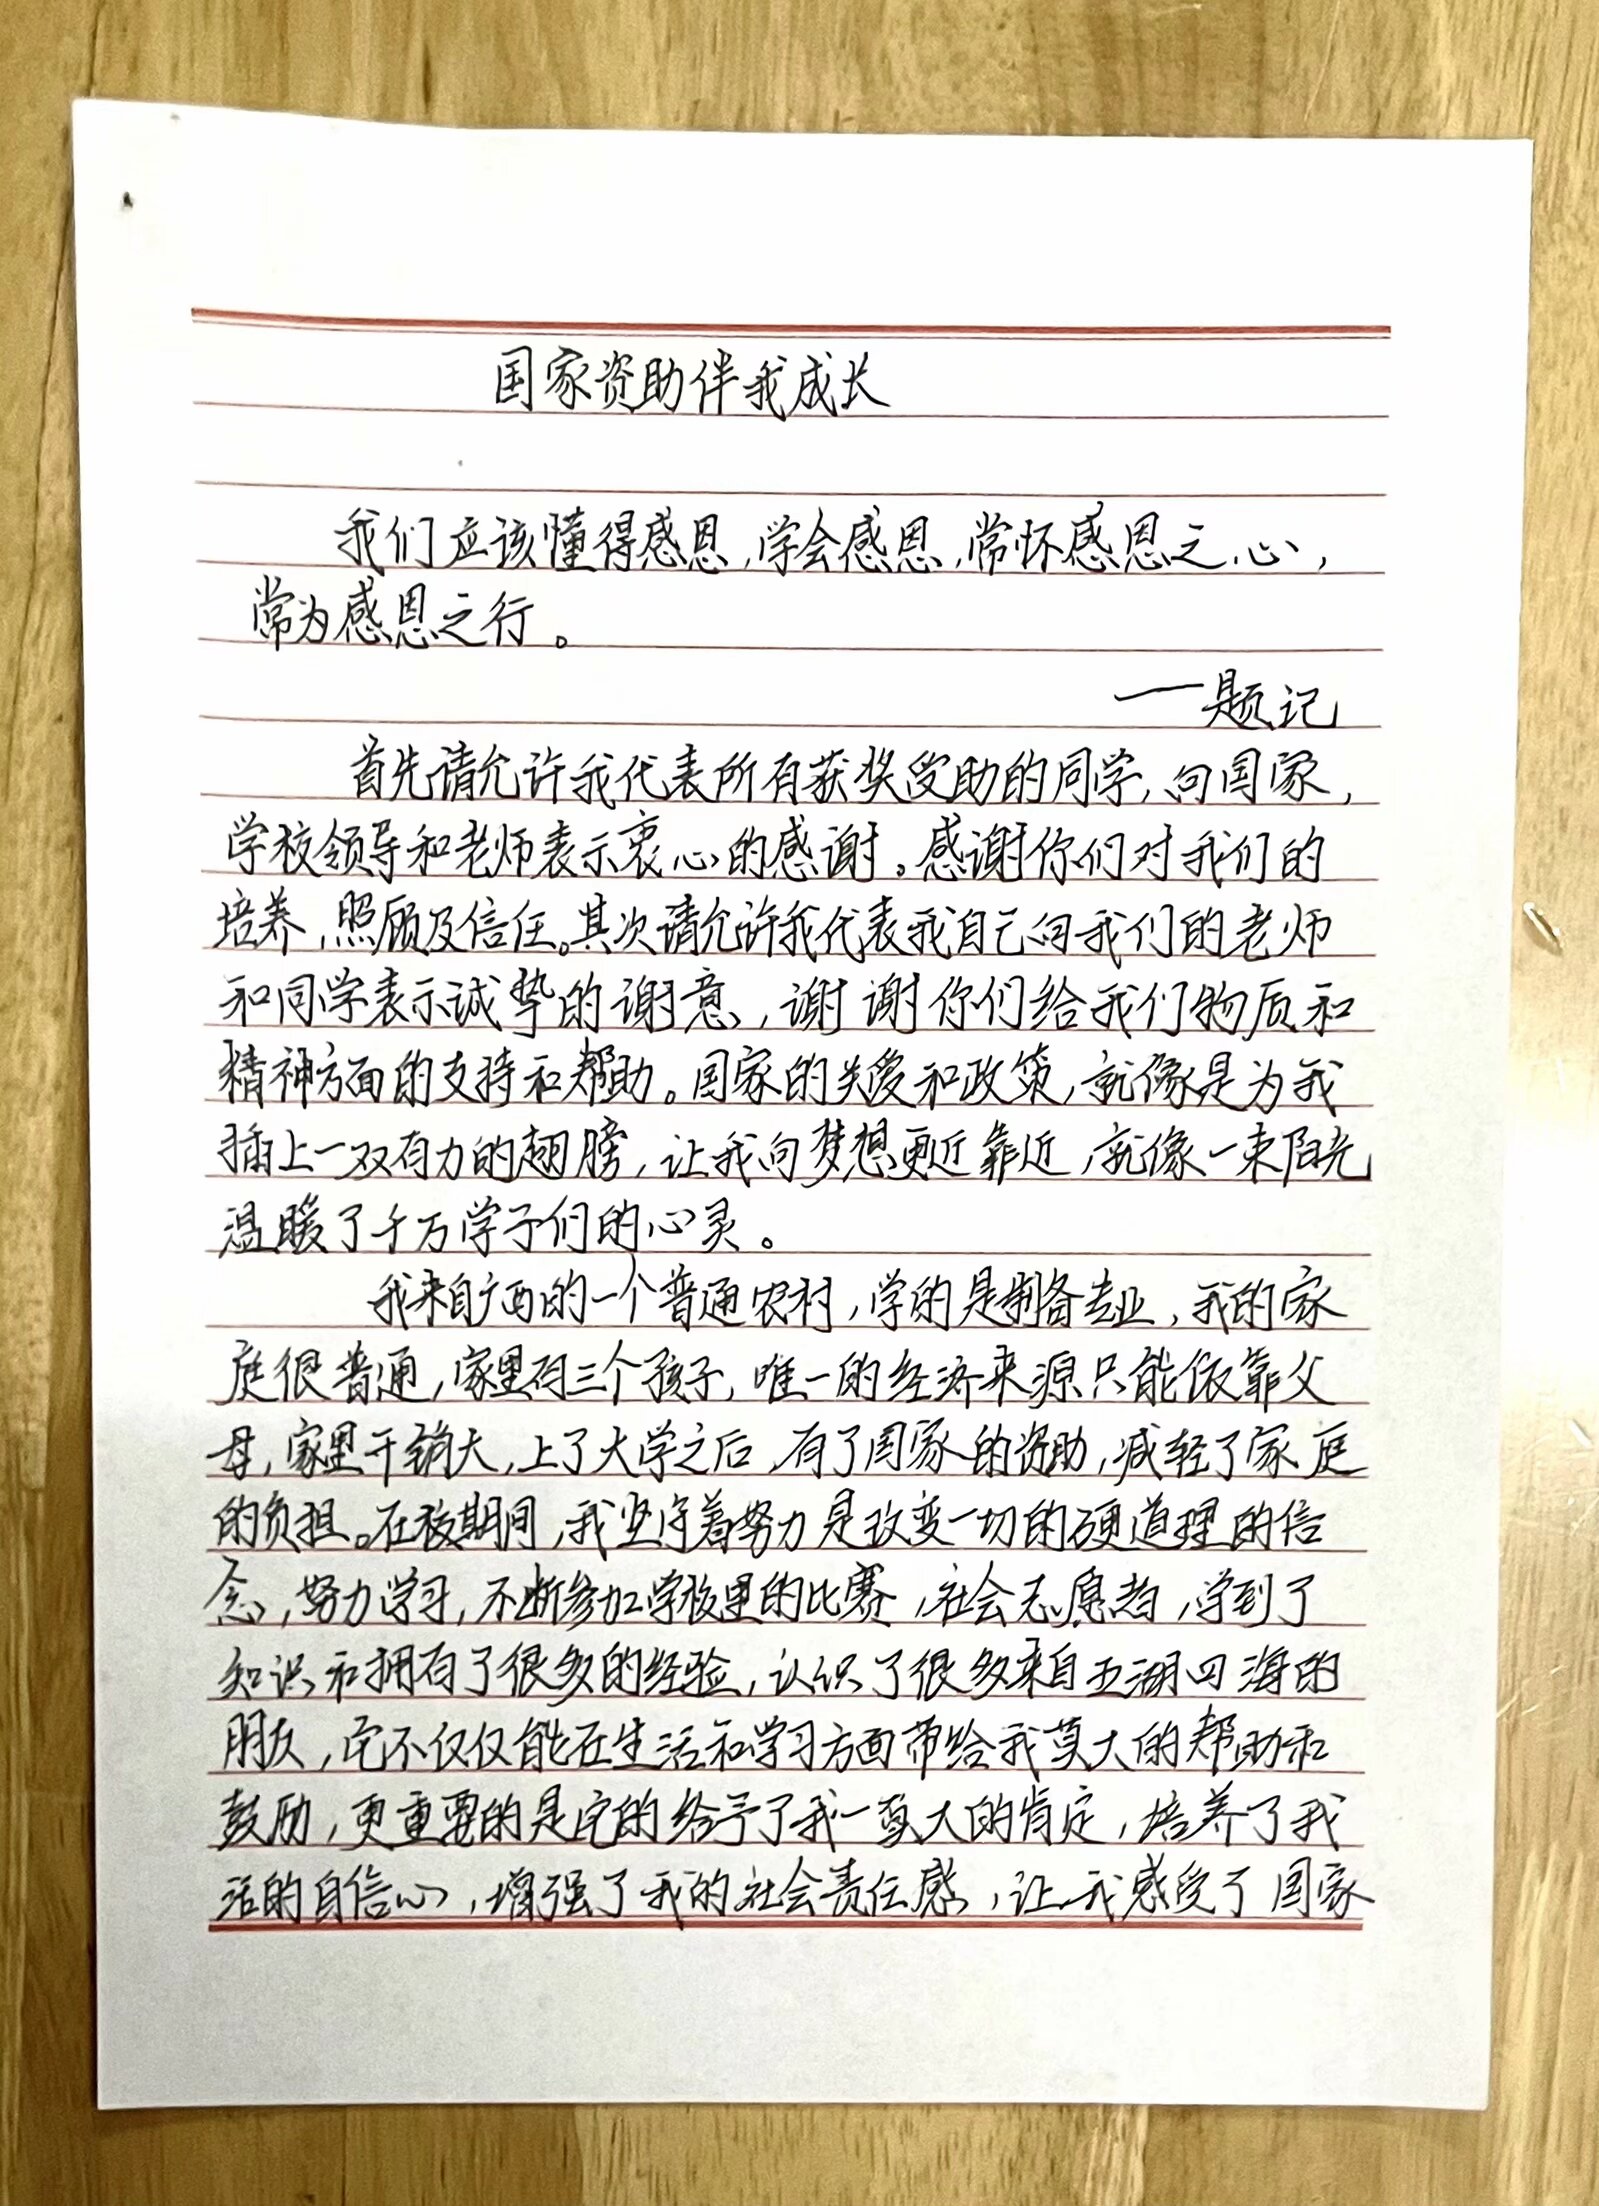 国家资助伴我成长
我们应该懂得感恩，学会感恩，常怀感恩之心，
常为感恩之行。
——题记
首先请允许我代表所有获奖受助的同学，向国家，
学校领导和老师表示衷心的感谢。感谢你们对我们的
培养，照顾及信任。其次请允许我代表我自己向我们的老师
和同学表示诚挚的谢意，谢谢你们给我们物质和
精神方面的支持和帮助。国家的关爱和政策，就像是为我
插上一双有力的翅膀，让我向梦想更近靠近，就像一束阳光
温暖了千万学子们的心灵。
我来自广西的一个普通农村，学的是制备专业，我的家
庭很普通，家里有三个孩子，唯一的经济来源只能依靠父
母，家里开销大，上了大学之后，有了国家的资助，减轻了家庭
的负担。在校期间，我坚守着努力是改变一切的硬道理的信
念，努力学习，不断参加学校里的比赛，社会志愿者，学到了
知识和拥有了很多的经验，认识了很多来自五湖四海的
朋友，它不仅仅能在生活和学习方面带给我莫大的帮助和
鼓励，更重要的是它的给予了我一莫大的肯定，培养了我
活的自信心，增强了我的社会责任感，让我感受了国家